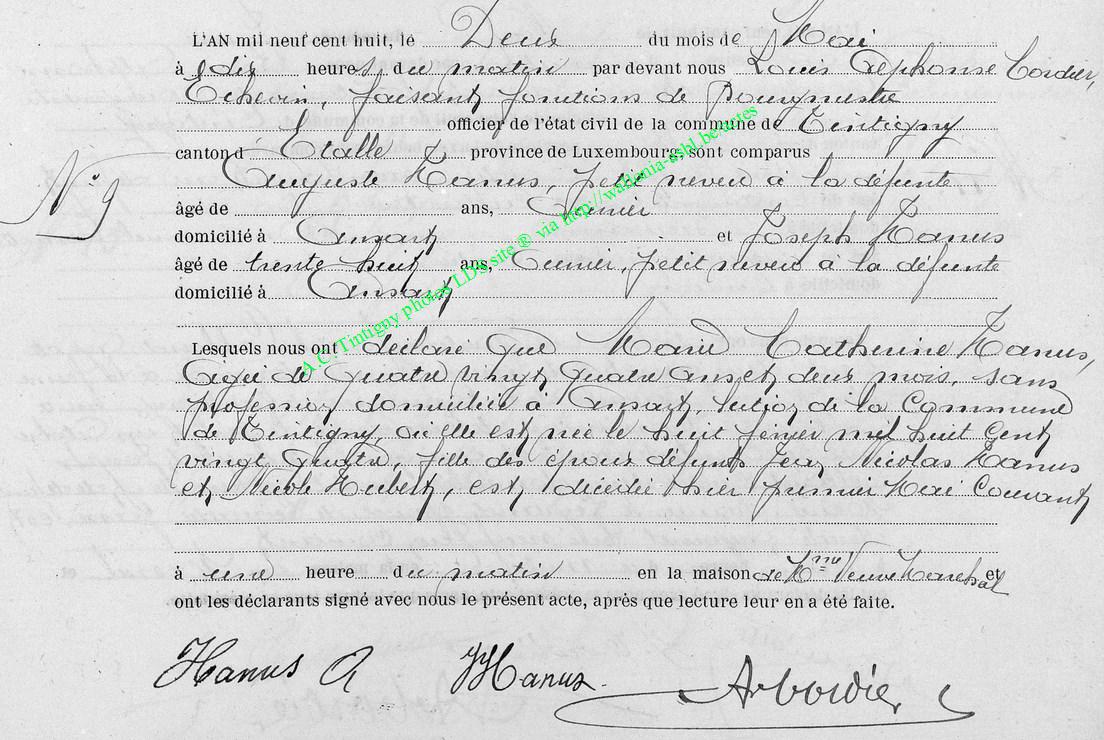 L'AN mil neuf cent huit, le Deux du mois de Mai
à dix heures du matin par devant nous Louis Alphonse Cordier,
Echevin, faisant fonctions de Bourgmestre
officier de l'état civil de la commune de Tintigny
canton d'Etalle province de Luxembourg, sont comparus
Auguste Hanus, petit neveu à la défunte
N° 9
âgé de ans,
domicilié à Ansart et Joseph Hanus
âgé de trente huit ans, petit neveu à la défunte
domicilié à Ansart
A.C. Tintigny photos LDS site ® via http://wallonia-asbl.be/actes
Lesquels nous ont déclaré que Marie Catherine Hanus,
âgée de quatre vingt quatre ans et deux mois, sans
profession domiciliée à Ansart, section de la Commune
de Tintigny, où elle est née le huit février mil huit cent
vingt quatre, fille des époux défunts Jean Nicolas Hanus
et Nicole Hubert, est décédée hier premier Mai Courant
à une heure du matin en la maison de Mme Veuve Marechal et
ont les déclarants signé avec nous le présent acte, après que lecture leur en a été faite.
Hanus A JHanus